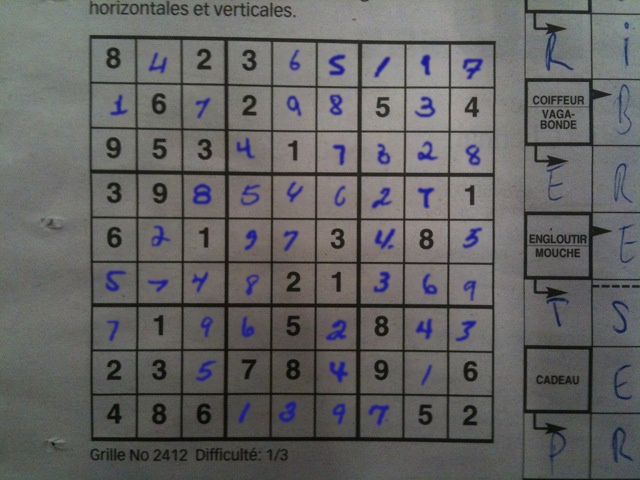 horizontales et verticales.
8 4 2 3 6 5 1 9 7
1 6 7 2 9 8 5 3 4
9 5 3 4 1 7 6 2 8
3 9 8 5 4 6 2 7 1
6 2 1 9 7 3 4 8 5
5 7 4 8 2 1 3 6 9
7 1 9 6 5 2 8 4 3
2 3 5 7 8 4 9 1 6
4 8 6 1 3 9 7 5 2
Grille No 2412 Difficulté: 1/3
R i
COIFFEUR
VAGA-
BONDE
B
E R
ENGLOUTIR
MOUCHE
E
T S
CADEAU
E
P R